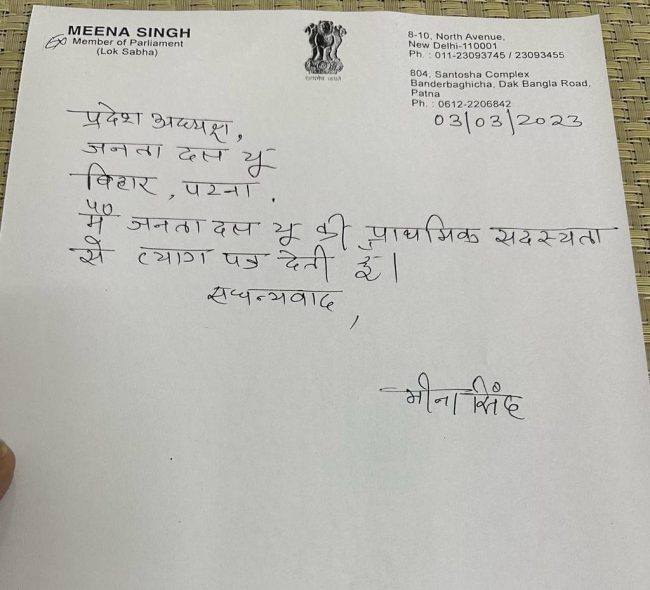 MEENA SINGH
Ex Member of Parliament
(Lok Sabha)
सत्यमेव जयते
8-10, North Avenue,
New Delhi-110001
Ph. : 011-23093745 / 23093455
804, Santosha Complex
Banderbaghicha, Dak Bangla Road,
Patna
Ph. : 0612-2206842
03/03/2023
प्रदेश अध्यक्ष,
जनता दल यू
बिहार, पटना.
मैं जनता दल यू की प्राथमिक सदस्यता
से त्याग पत्र देती हूँ।
सधन्यवाद,
मीना सिंह